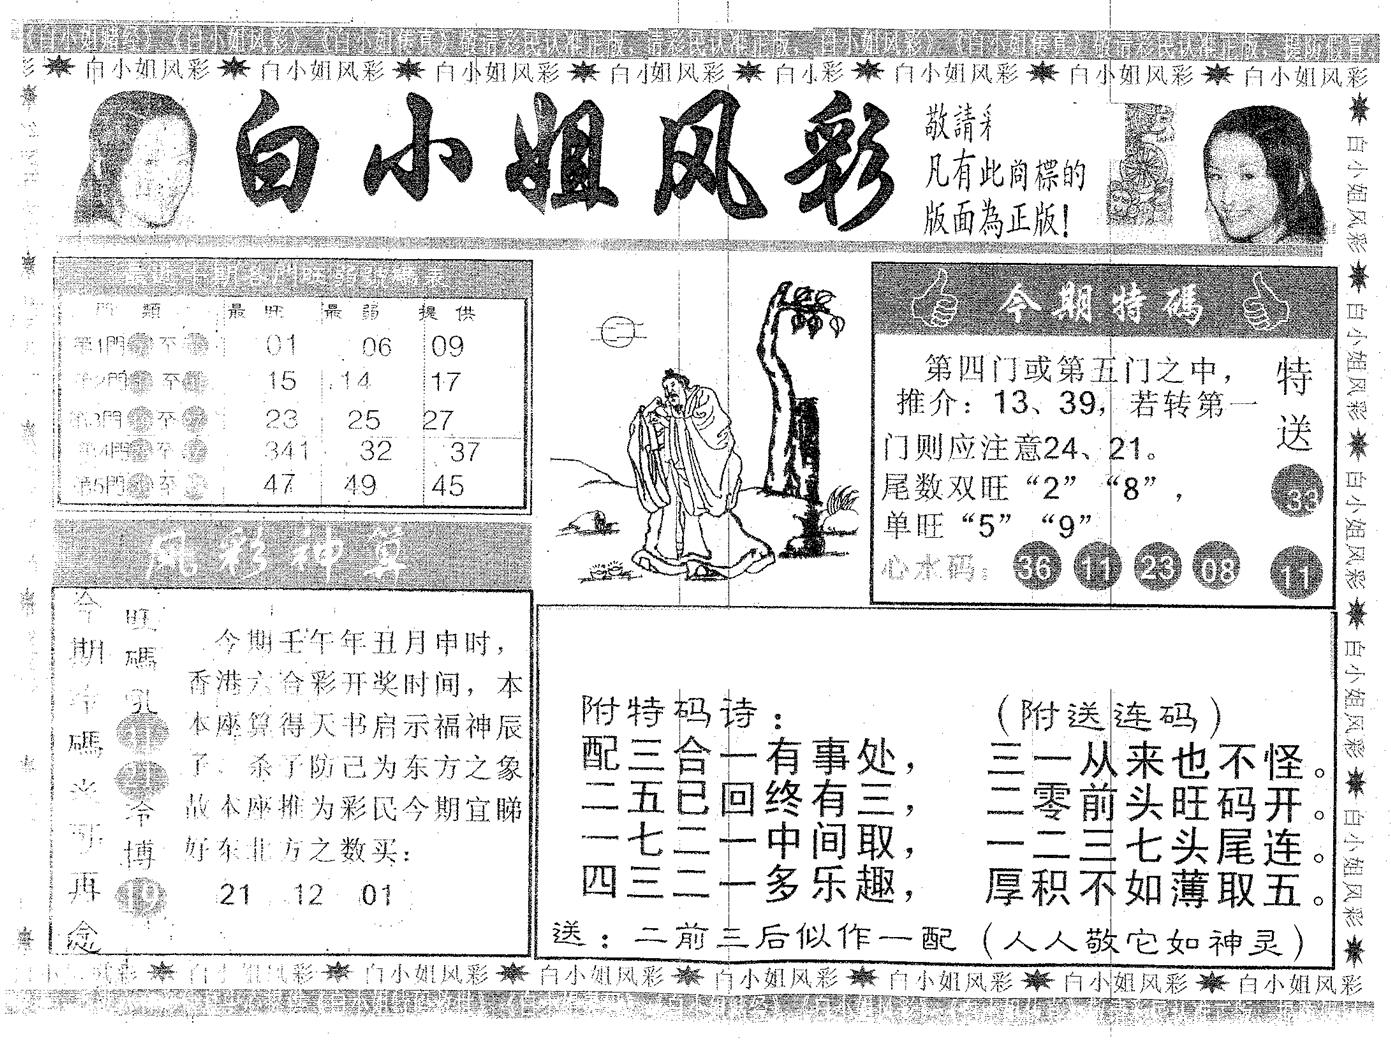 《白小姐赌经》、《白小姐风彩》、《白小姐传真》敬请彩民认准正版，请彩民认准正版，《白小姐风彩》、《白小姐传真》敬请彩民认准正版，提防假冒.
彩 白小姐风彩 白小姐风彩 白小姐风彩 白小姐风彩 白小彩 白小姐风彩 白小姐风彩 白小姐风彩
白小姐风彩
敬請彩
凡有此商標的
版面為正版!
最近十期各門旺弱號碼表
門 類 最 旺 最 弱 提 供
第1門 至 01 06 09
第2門 至 15 14 17
第3門 至 23 25 27
第4門 至 341 32 37
第5門 至 47 49 45
今期特碼
第四门或第五门之中，
推介：13、39，若转第一
门则应注意24、21。
尾数双旺“2”“8”，
单旺“5”“9”
心水码： 36 11 23 08
特送
33
11
风彩神算
今期
碼
再念
旺碼
21
冷博
19
今期壬午年丑月申时，
香港六合彩开奖时间，本
本座算得天书启示福神辰
了、杀子防己为东方之象
故本座推为彩民今期宜睇
好东北方之数买：
21 12 01
附特码诗：
配三合一有事处，
二五已回终有三，
一七二一中间取，
四三二一多乐趣，
（附送连码）
三一从来也不怪。
二零前头旺码开。
一二三七头尾连。
厚积不如薄取五。
送：二前三后似作一配（人人敬它如神灵）
白小姐风彩 白小姐风彩 白小姐风彩 白小姐风彩 白小姐风彩 白小姐风彩 白小姐风彩
白小姐风彩 白小姐风彩 白小姐风彩 白小姐风彩 白小姐风彩